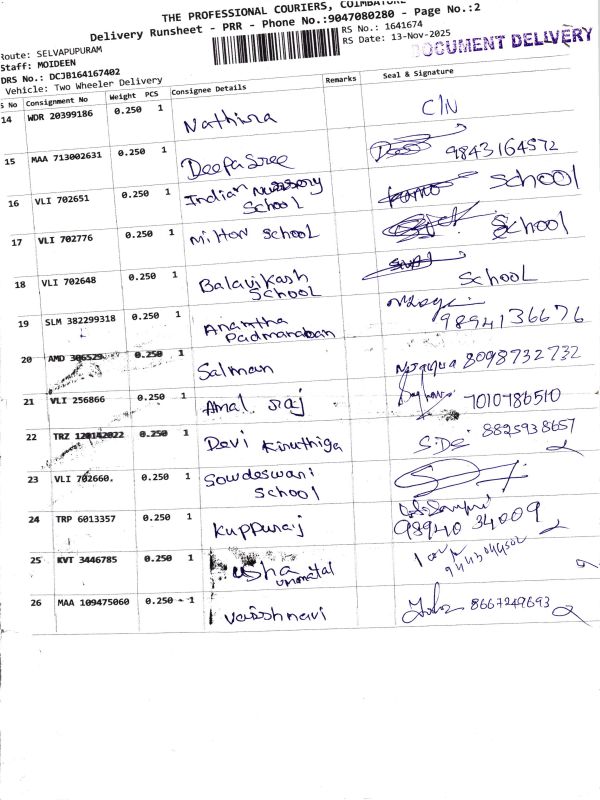 THE PROFESSIONAL COURIERS, COIMBATORE
Delivery Runsheet - PRR - Phone No.:9047080280 - Page No.:2
Route: SELVAPUPURAM
RS No.: 1641674
Staff: MOIDEEN
RS Date: 13-Nov-2025
DOCUMENT DELIVERY
DRS No.: DCJB164167402
Vehicle: Two Wheeler Delivery
S No Consignment No Weight PCS Consignee Details Remarks Seal & Signature
14 WDR 20399186 0.250 1 Nathina C/N
15 MAA 713002631 0.250 1 Deepa Sree 9843164572
16 VLI 702651 0.250 1 Indian Nursery School School
17 VLI 702776 0.250 1 Milton School School
18 VLI 702648 0.250 1 Balavikash School School
19 SLM 382299318 0.250 1 Anantha Padmanaban 9894136676
20 AMD 306529 0.250 1 Salman 8098732732
21 VLI 256866 0.250 1 Amal raj 7010786510
22 TRZ 120142022 0.250 1 Devi Kiruthiga 8825938657
23 VLI 702660. 0.250 1 Sowdeswari School
24 TRP 6013357 0.250 1 Kuppuraj 98940 34009
25 KVT 3446785 0.250 1 usha
26 MAA 109475060 0.250 1 Vaishnavi 8667249693